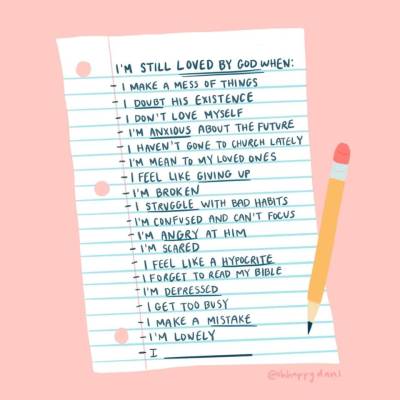 I'M STILL LOVED BY GOD WHEN:
- I MAKE A MESS OF THINGS
- I DOUBT HIS EXISTENCE
- I DON'T LOVE MYSELF
- I'M ANXIOUS ABOUT THE FUTURE
- I HAVEN'T GONE TO CHURCH LATELY
- I'M MEAN TO MY LOVED ONES
- I FEEL LIKE GIVING UP
- I'M BROKEN
- I STRUGGLE WITH BAD HABITS
- I'M CONFUSED AND CAN'T FOCUS
- I'M ANGRY AT HIM
- I'M SCARED
- I FEEL LIKE A HYPOCRITE
- I FORGET TO READ MY BIBLE
- I'M DEPRESSED
- I GET TOO BUSY
- I MAKE A MISTAKE
- I'M LONELY
- I ___________
@ohhappydani